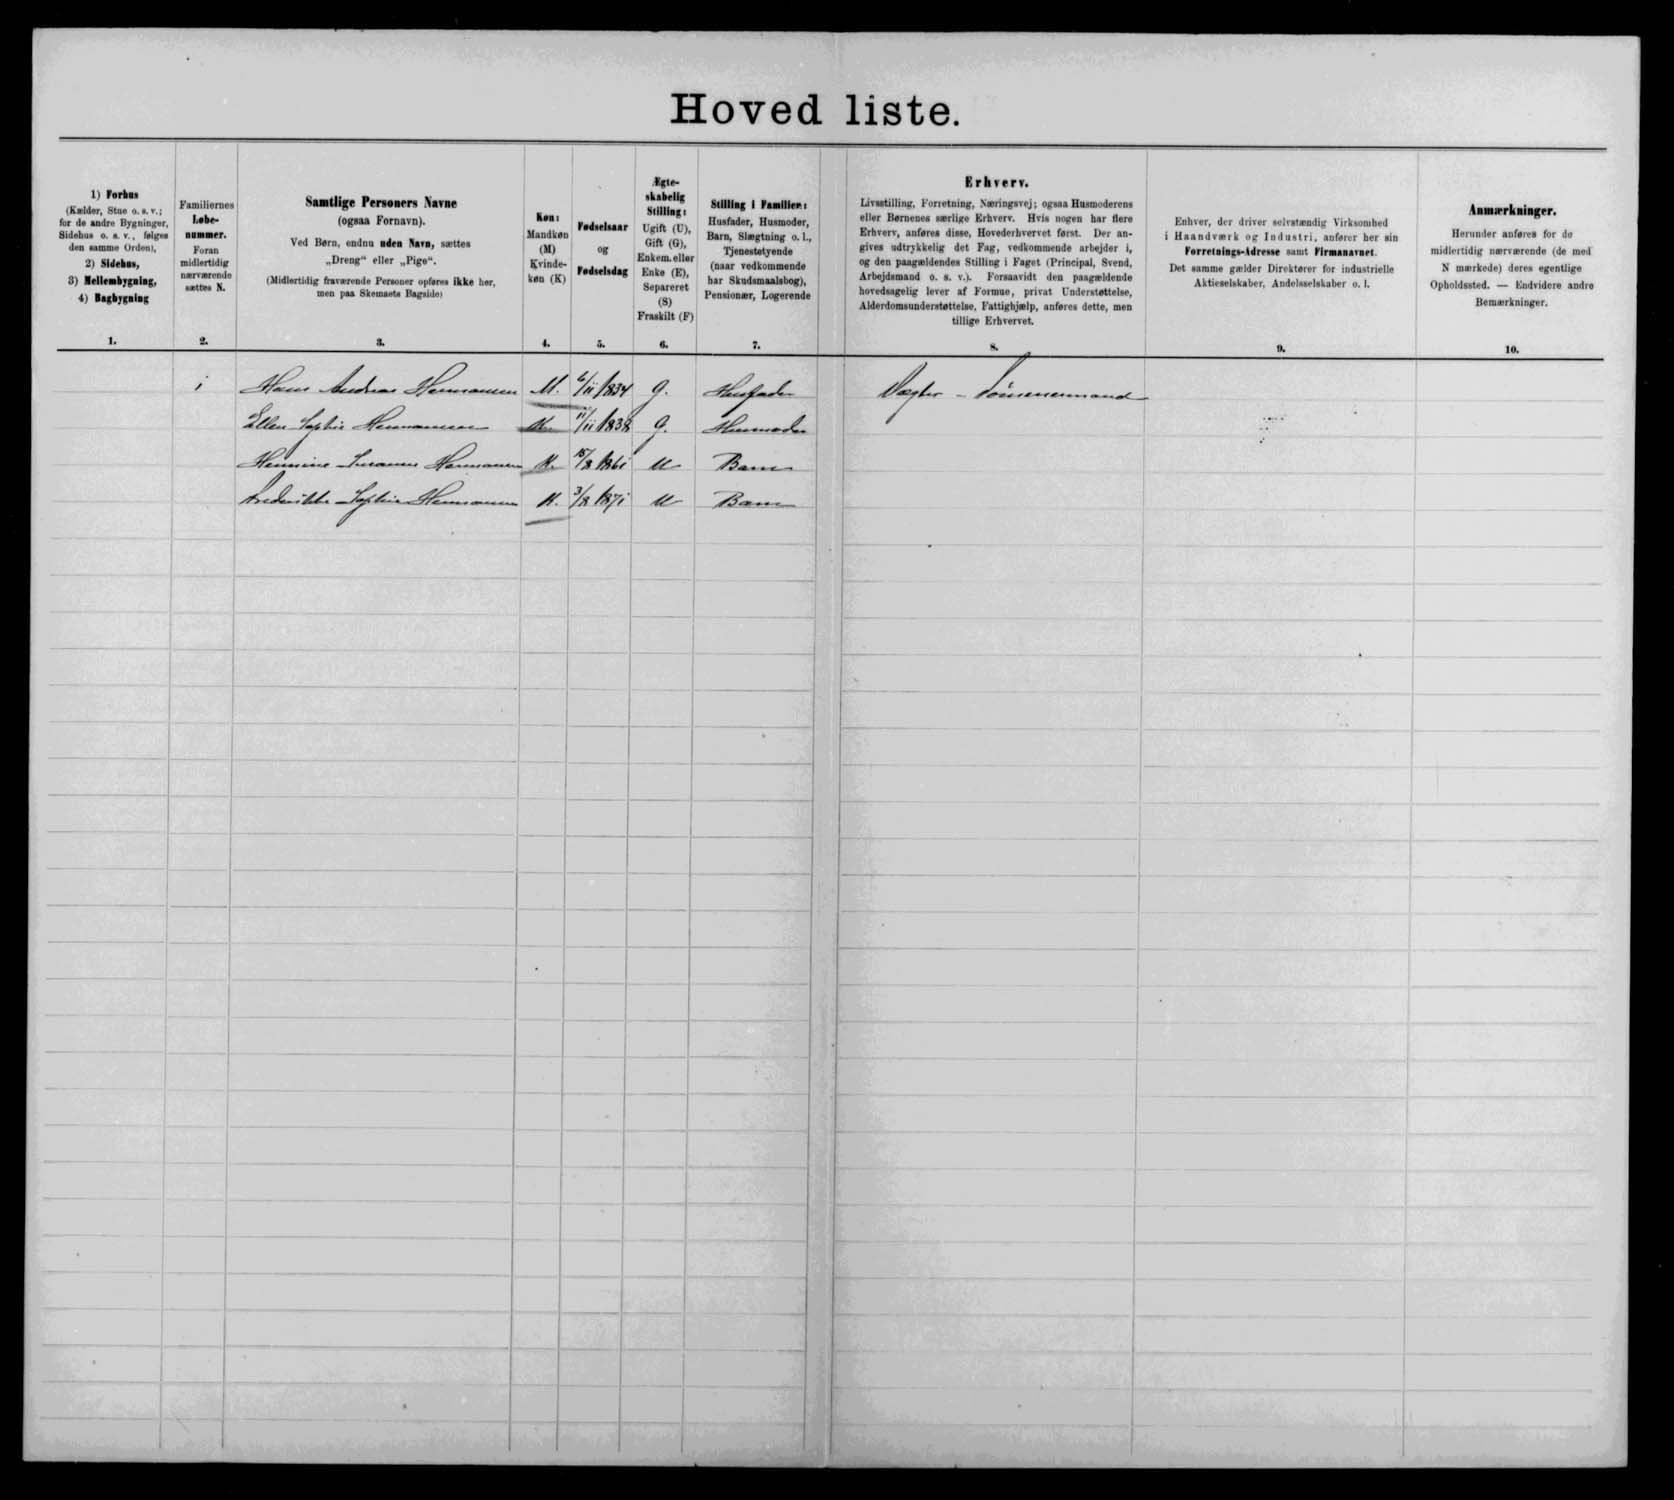 Hoved liste.
1) Forhus
(Kælder, Stue o. s. v.;
for de andre Bygninger,
Sidehus o. s. v., følges
den samme Orden),
2) Sidehus,
3) Mellembygning,
4) Bagbygning
1.
Familiernes
Løbe-
nummer.
Foran
midlertidig
nærværende
sættes N.
2.
Samtlige Personers Navne
(ogsaa Fornavn).
Ved Børn, endnu uden Navn, sættes
„Dreng“ eller „Pige“.
(Midlertidig fraværende Personer opføres ikke her,
men paa Skemaets Bagside)
3.
Køn:
Mandkøn
(M)
Kvinde-
køn (K)
4.
Fødselsaar
og
Fødselsdag
5.
Ægte-
skabelig
Stilling:
Ugift (U),
Gift (G),
Enkem. eller
Enke (E),
Separeret
(S)
Fraskilt (F)
6.
Stilling i Familien:
Husfader, Husmoder,
Barn, Slægtning o. l.,
Tjenestetyende
(naar vedkommende
har Skudsmaalsbog),
Pensionær, Logerende
7.
Erhverv.
Livsstilling, Forretning, Næringsvej; ogsaa Husmoderens
eller Børnenes særlige Erhverv. Hvis nogen har flere
Erhverv, anføres disse, Hovederhvervet først. Der an-
gives udtrykkelig det Fag, vedkommende arbejder i,
og den paagældendes Stilling i Faget (Principal, Svend,
Arbejdsmand o. s. v.). Forsaavidt den paagældende
hovedsagelig lever af Formue, privat Understøttelse,
Alderdomsunderstøttelse, Fattighjælp, anføres dette, men
tillige Erhvervet.
8.
Enhver, der driver selvstændig Virksomhed
i Haandværk og Industri, anfører her sin
Forretnings-Adresse samt Firmanavnet.
Det samme gælder Direktører for industrielle
Aktieselskaber, Andelsselskaber o. l.
9.
Anmærkninger.
Herunder anføres for de
midlertidig nærværende (de med
N mærkede) deres egentlige
Opholdssted. — Endvidere andre
Bemærkninger.
10.
1 Hans Andreas Hermansen M. 6/11 1834 G. Husfader Vægter - Tømmermand
Ellen Sophie Hermansen K. 11/11 1838 G. Husmoder
Hermine Susanne Hermansen K. 15/8 1861 U Barn
Frederikke Sophie Hermansen K. 3/8 1871 U Barn